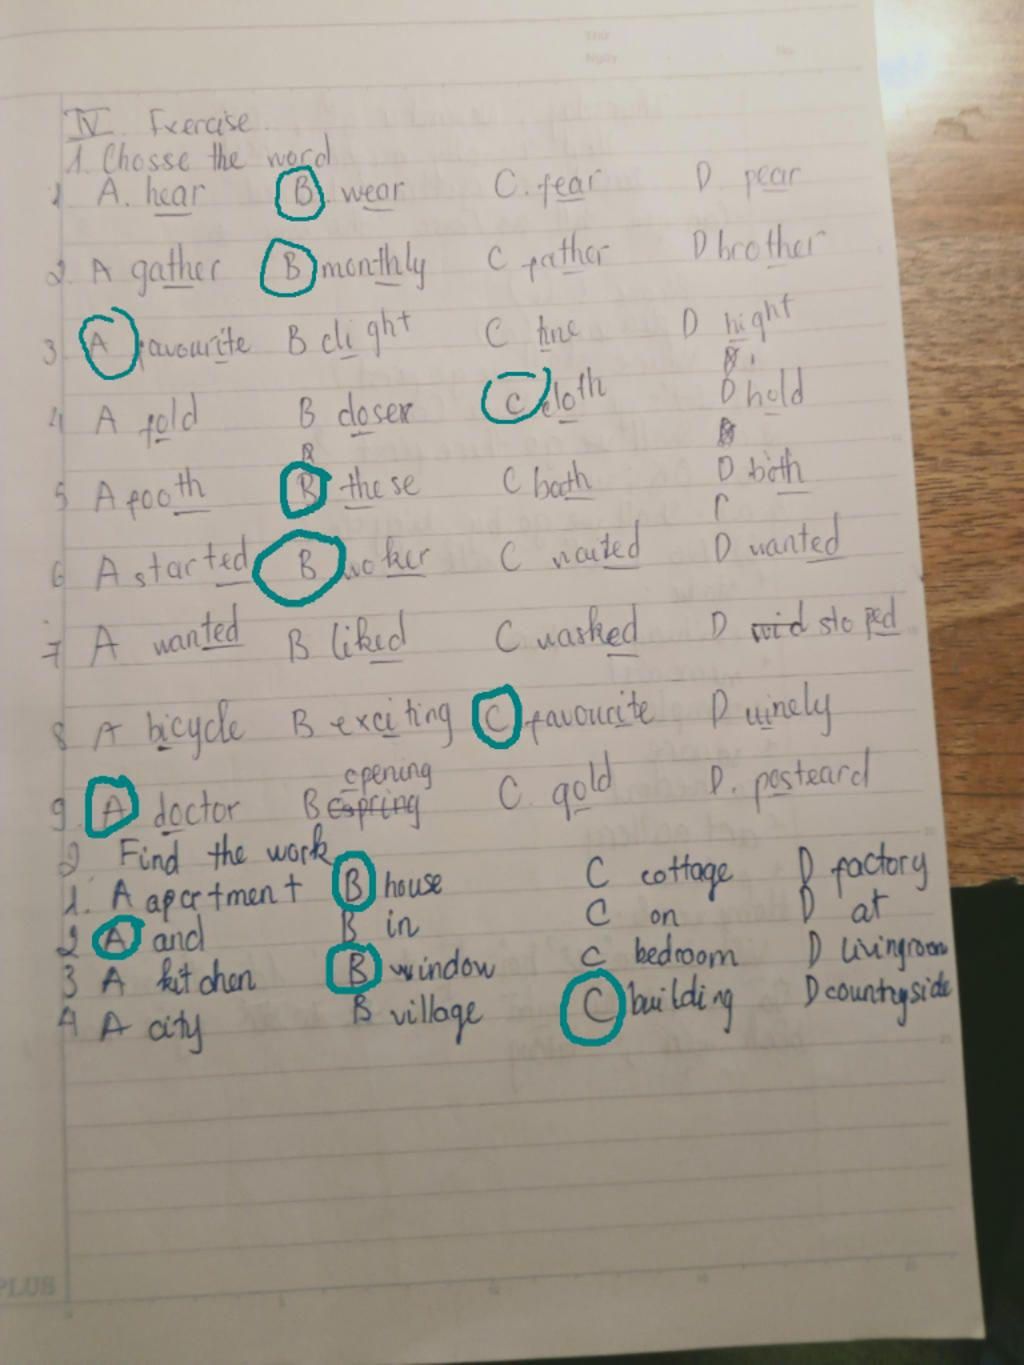 Thứ
Ngày No.
IV. Exercise.
1. Chosse the word
1 A. hear B. wear C. fear D. pear
2. A gather B monthly C father D brother
3 A favourite B clight C fine D hight
4 A gold B closer C cloth D hold
5 A footh B these C bath D both
6 A started B woker C waited D wanted
7 A wanted B liked C washed D stoped
8 A bicycle B exciting C favourite D
9. A doctor B opening C. gold D. postcard
2 Find the work
1. A apartment B house C cottage D factory
2 A and B in C on D at
3 A kitchen B window C bedroom D livingroom
4 A city B village C building D countryside
PLUS